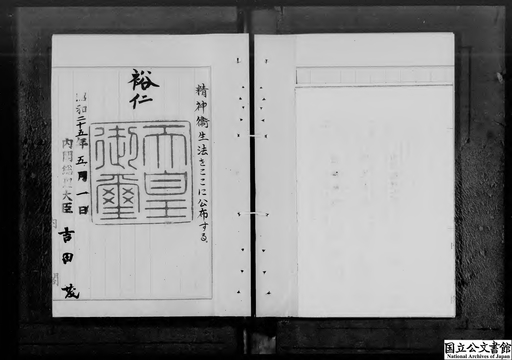 精神衞生法をここに公布する。
裕仁
天皇
御璽
昭和二十五年五月一日
内閣総理大臣 吉田茂
国立公文書館
National Archives of Japan